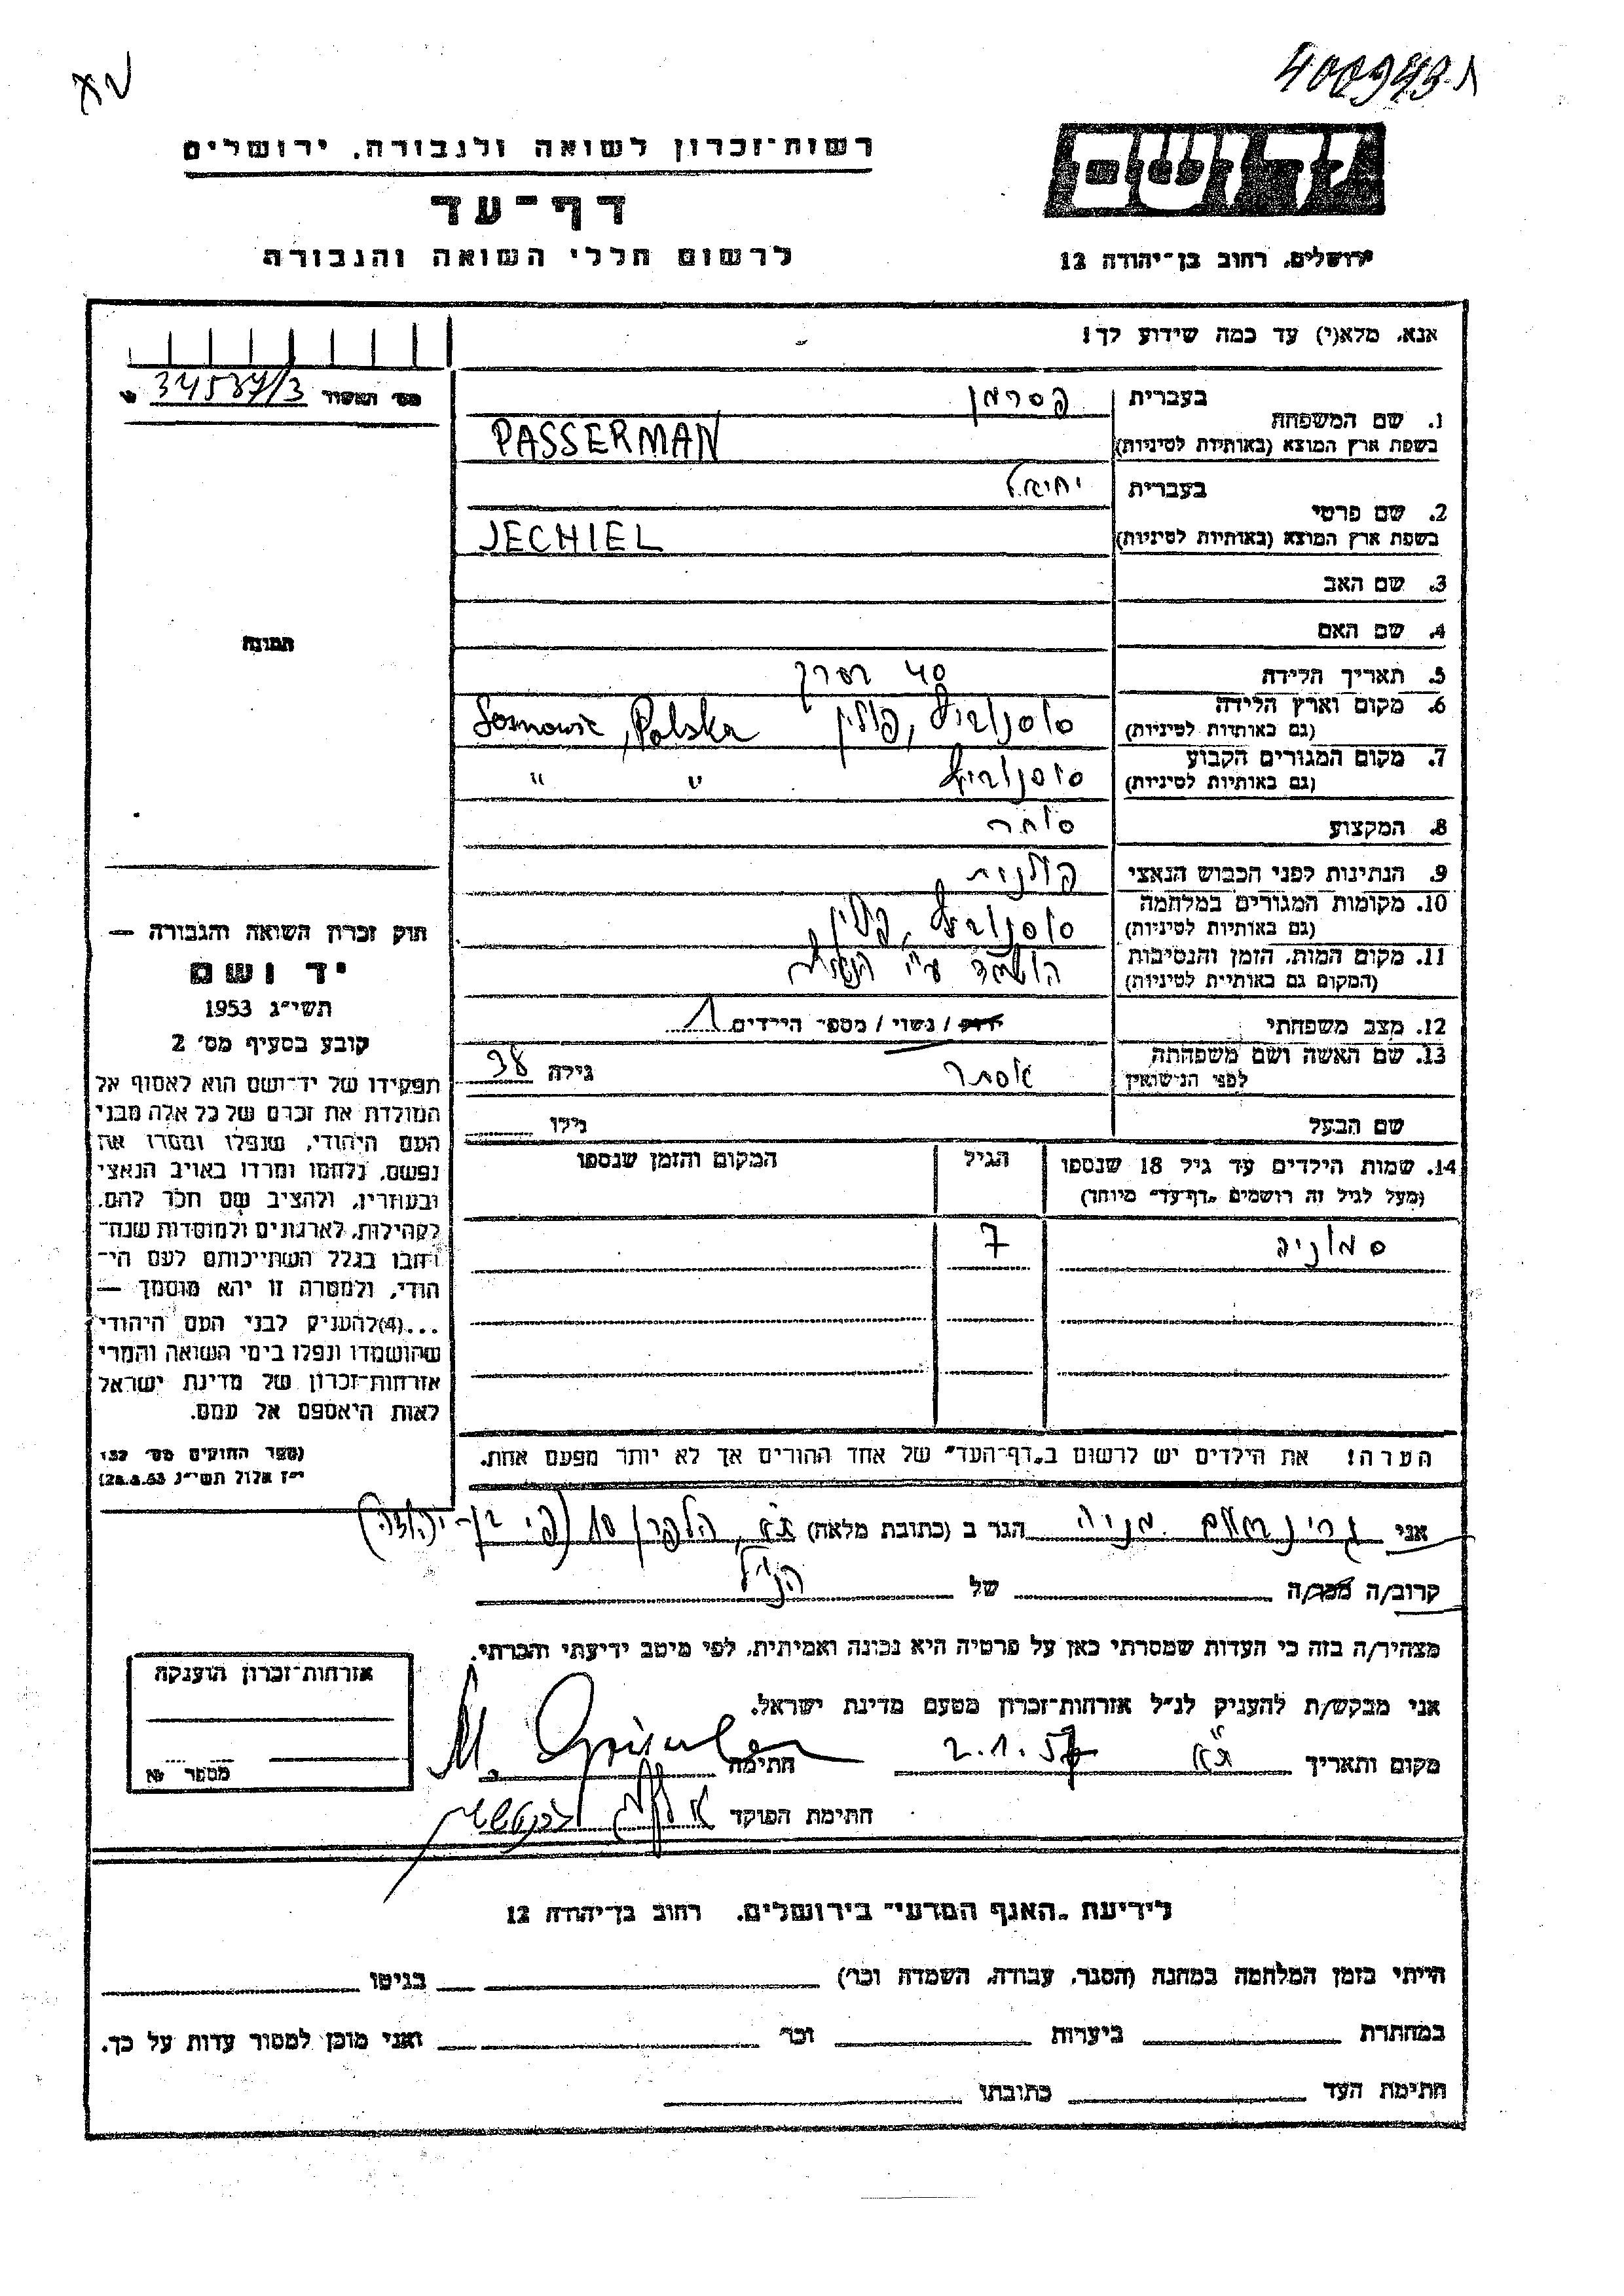 400943 ת
רשות־זכרון לשואה ולגבורה, ירושלים
דף־עד
לרשום חללי השואה והגבורה
יד ושם
ירושלים, רחוב בן־יהודה 12
אנא, מלא(י) עד כמה שידוע לך!
מס' תאשור 34537/3
בעברית פסרמן
1. שם המשפחה
בשפת ארץ המוצא (באותיות לטיניות) PASSERMAN
בעברית יחיאל
2. שם פרטי
בשפת ארץ המוצא (באותיות לטיניות) JECHIEL
3. שם האב
4. שם האם
5. תאריך הלידה 40 בערך
6. מקום וארץ הלידה סוסנוביץ, פולין Sosnowic, Polska
(גם באותיות לטיניות)
7. מקום המגורים הקבוע סוסנוביץ " "
(גם באותיות לטיניות)
8. המקצוע סוחר
9. הנתינות לפני הכבוש הנאצי פולנית
10. מקומות המגורים במלחמה סוסנוביץ, פולין
(גם באותיות לטיניות)
11. מקום המות, הזמן והנסיבות הושמד ע"י הנאצים
(המקום גם באותיות לטיניות)
12. מצב משפחתי רווק / נשוי / מספר הילדים 1
13. שם האשה ושם משפחתה אסתר גילה 38
לפני הנישואין
שם הבעל גילו
14. שמות הילדים עד גיל 18 שנספו הגיל המקום והזמן שנספו
(מעל לגיל זה רושמים "דף־עד" מיוחד)
סוניה 7
הערה! את הילדים יש לרשום ב"דף־העד" של אחד ההורים אך לא יותר מפעם אחת.
תמונה
חוק זכרון השואה והגבורה —
יד ושם
תשי"ג 1953
קובע בסעיף מס' 2
תפקידו של יד־ושם הוא לאסוף אל
המולדת את זכרם של כל אלה מבני
העם היהודי, שנפלו ומסרו את
נפשם, נלחמו ומרדו באויב הנאצי
ובעוזריו, ולהציב שם וזכר להם,
לקהילות, לארגונים ולמוסדות שנח־
רבו בגלל השתייכותם לעם הי־
הודי, ולמטרה זו יהא מוסמך —
...(4)להעניק לבני העם היהודי
שהושמדו ונפלו בימי השואה והמרי
אזרחות־זכרון של מדינת ישראל
לאות היאספם אל עמם.
(ספר החוקים מס' 132
י"ז אלול תשי"ג 28.8.53)
אני מניה הגר ב (כתובת מלאה) ת"א, 10
קרוב/ה מכר/ה של הנ"ל
מצהיר/ה בזה כי העדות שמסרתי כאן על פרטיה היא נכונה ואמיתית, לפי מיטב ידיעתי והכרתי.
אני מבקש/ת להעניק לנ"ל אזרחות־זכרון מטעם מדינת ישראל.
מקום ותאריך ת"א 2.1.57 חתימה M.
חתימת הפוקד
אזרחות־זכרון הוענקה
מספר
לידיעת "האגף המדעי" בירושלים, רחוב בן־יהודה 12
הייתי בזמן המלחמה במחנה (הסגר, עבודה, השמדה וכר') בגיטו
במחתרת ביערות וכר' ואני מוכן למסור עדות על כך.
חתימת העד כתובתו